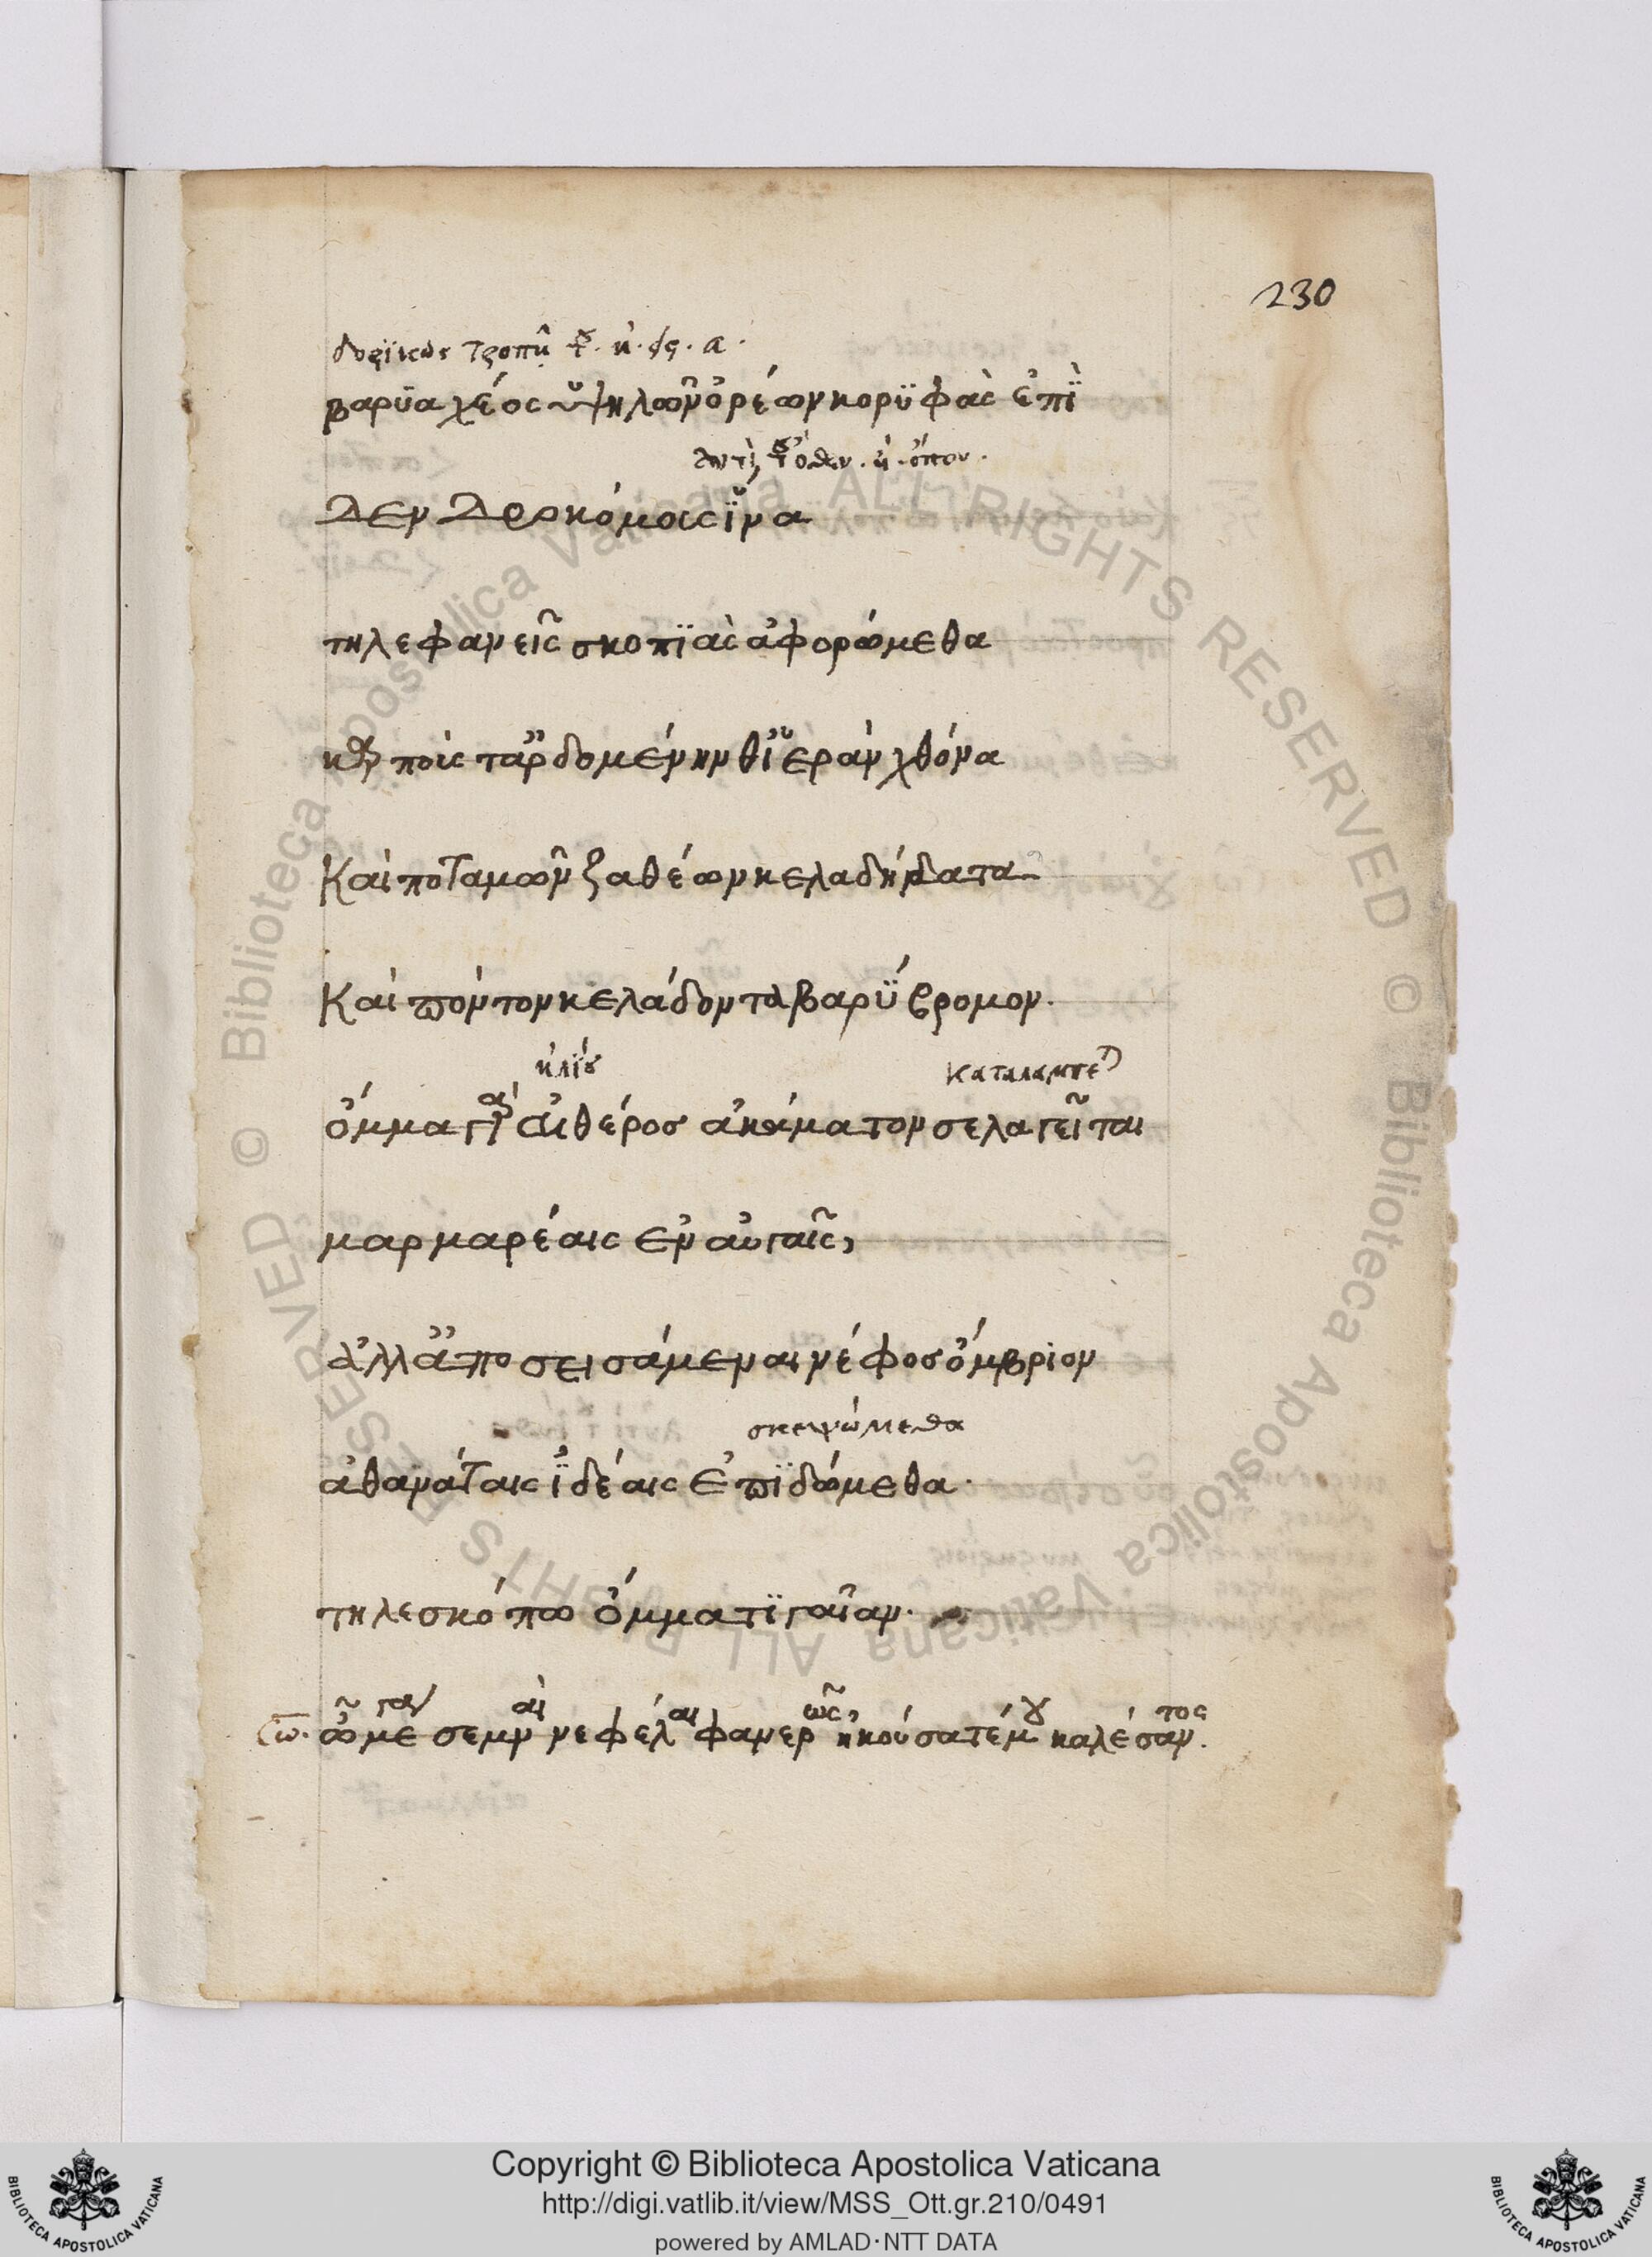 230
δωρϊκῶς τροπῆ τ. η. εις. α.
βαρϋαχέος ὑψηλῶν ὀρέων κορϋφὰς ἐπῒ
ἀντὶ τοῦ ὅθεν. ἢ ὅπου.
δενδροκόμοις ἵ̈να
τηλεφανεῖς σκοπϊὰς ἀφορώμεθα
καρποῖς τ' ἀρδομένην θ' ἱερὰν χθόνα
Καὶ ποταμῶν ζαθέων κελαδήματα
Καὶ πόντον κελάδοντα βαρΰβρομον.
ἡλίου καταλάμπεται
ὄμμα γὰρ αἰθέρος ἀκάματον σελαγεῖται
μαρμαρέαις ἐν αὐγαῖς,
ἀλλ' ἀποσεισάμεναι νέφος ὄμβριον
σκεψώμεθα
ἀθανάταις ἰ̈δέαις ἐπϊδώμεθα.
τηλεσκόπω ὄμματϊ γαῖαν.
Σω. ὦ μέγα σεμναὶ νεφέλαι φανερῶς, ἠκούσατέ μου καλέσαντος.
Copyright © Biblioteca Apostolica Vaticana
http://digi.vatlib.it/view/MSS_Ott.gr.210/0491
powered by AMLAD·NTT DATA